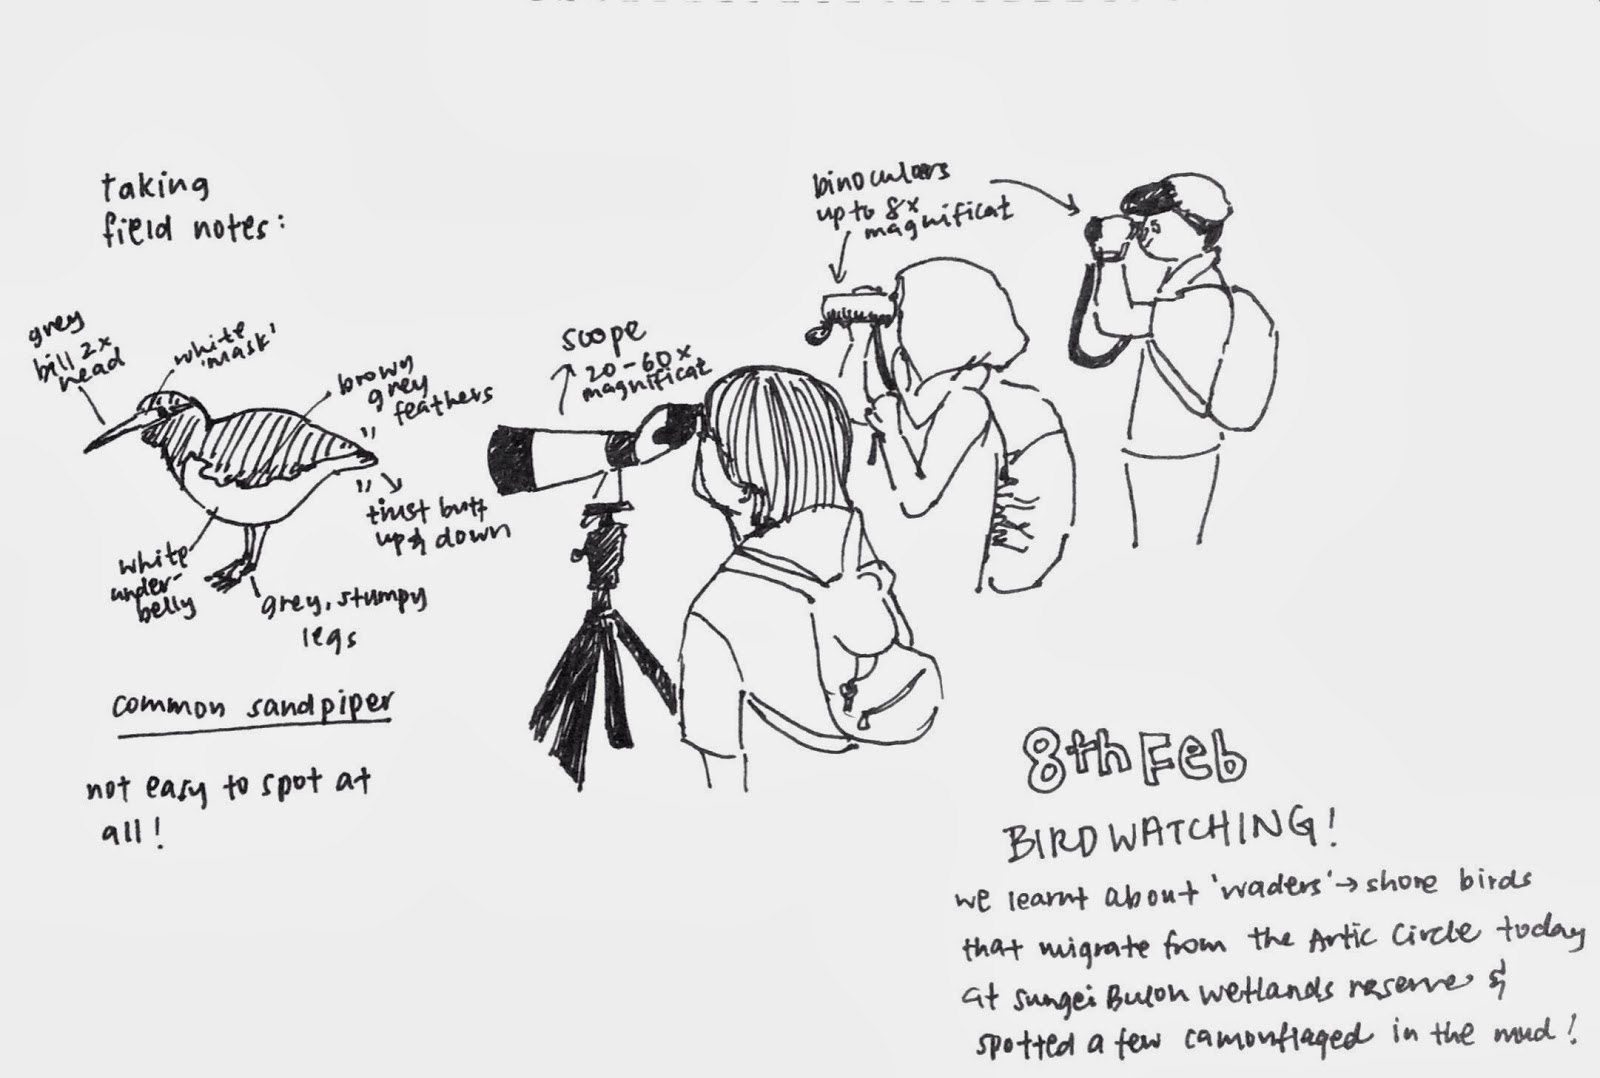 taking
field notes:
grey
bill 2x
head
white
'mask'
brown
grey
feathers
thust butt
up & down
white
under-
belly
grey, stumpy
legs
common sandpiper
not easy to spot at
all!
scope
20-60x
magnificat
binoculars
up to 8x
magnificat
8th Feb
BIRDWATCHING!
we learnt about 'waders' → shore birds
that migrate from the Artic Circle today
at sungei Buloh wetlands reserve &
spotted a few camouflaged in the mud!